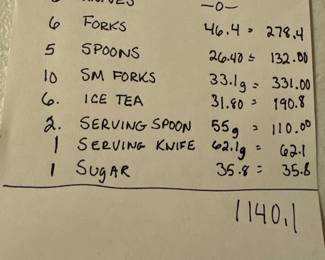 KNIVES —0—
6 FORKS 46.4 = 278.4
5 SPOONS 26.40 = 132.00
10 SM FORKS 33.1g = 331.00
6. ICE TEA 31.80 = 190.8
2. SERVING SPOON 55g = 110.00
1 SERVING KNIFE 62.1g = 62.1
1 SUGAR 35.8 = 35.8
1140.1